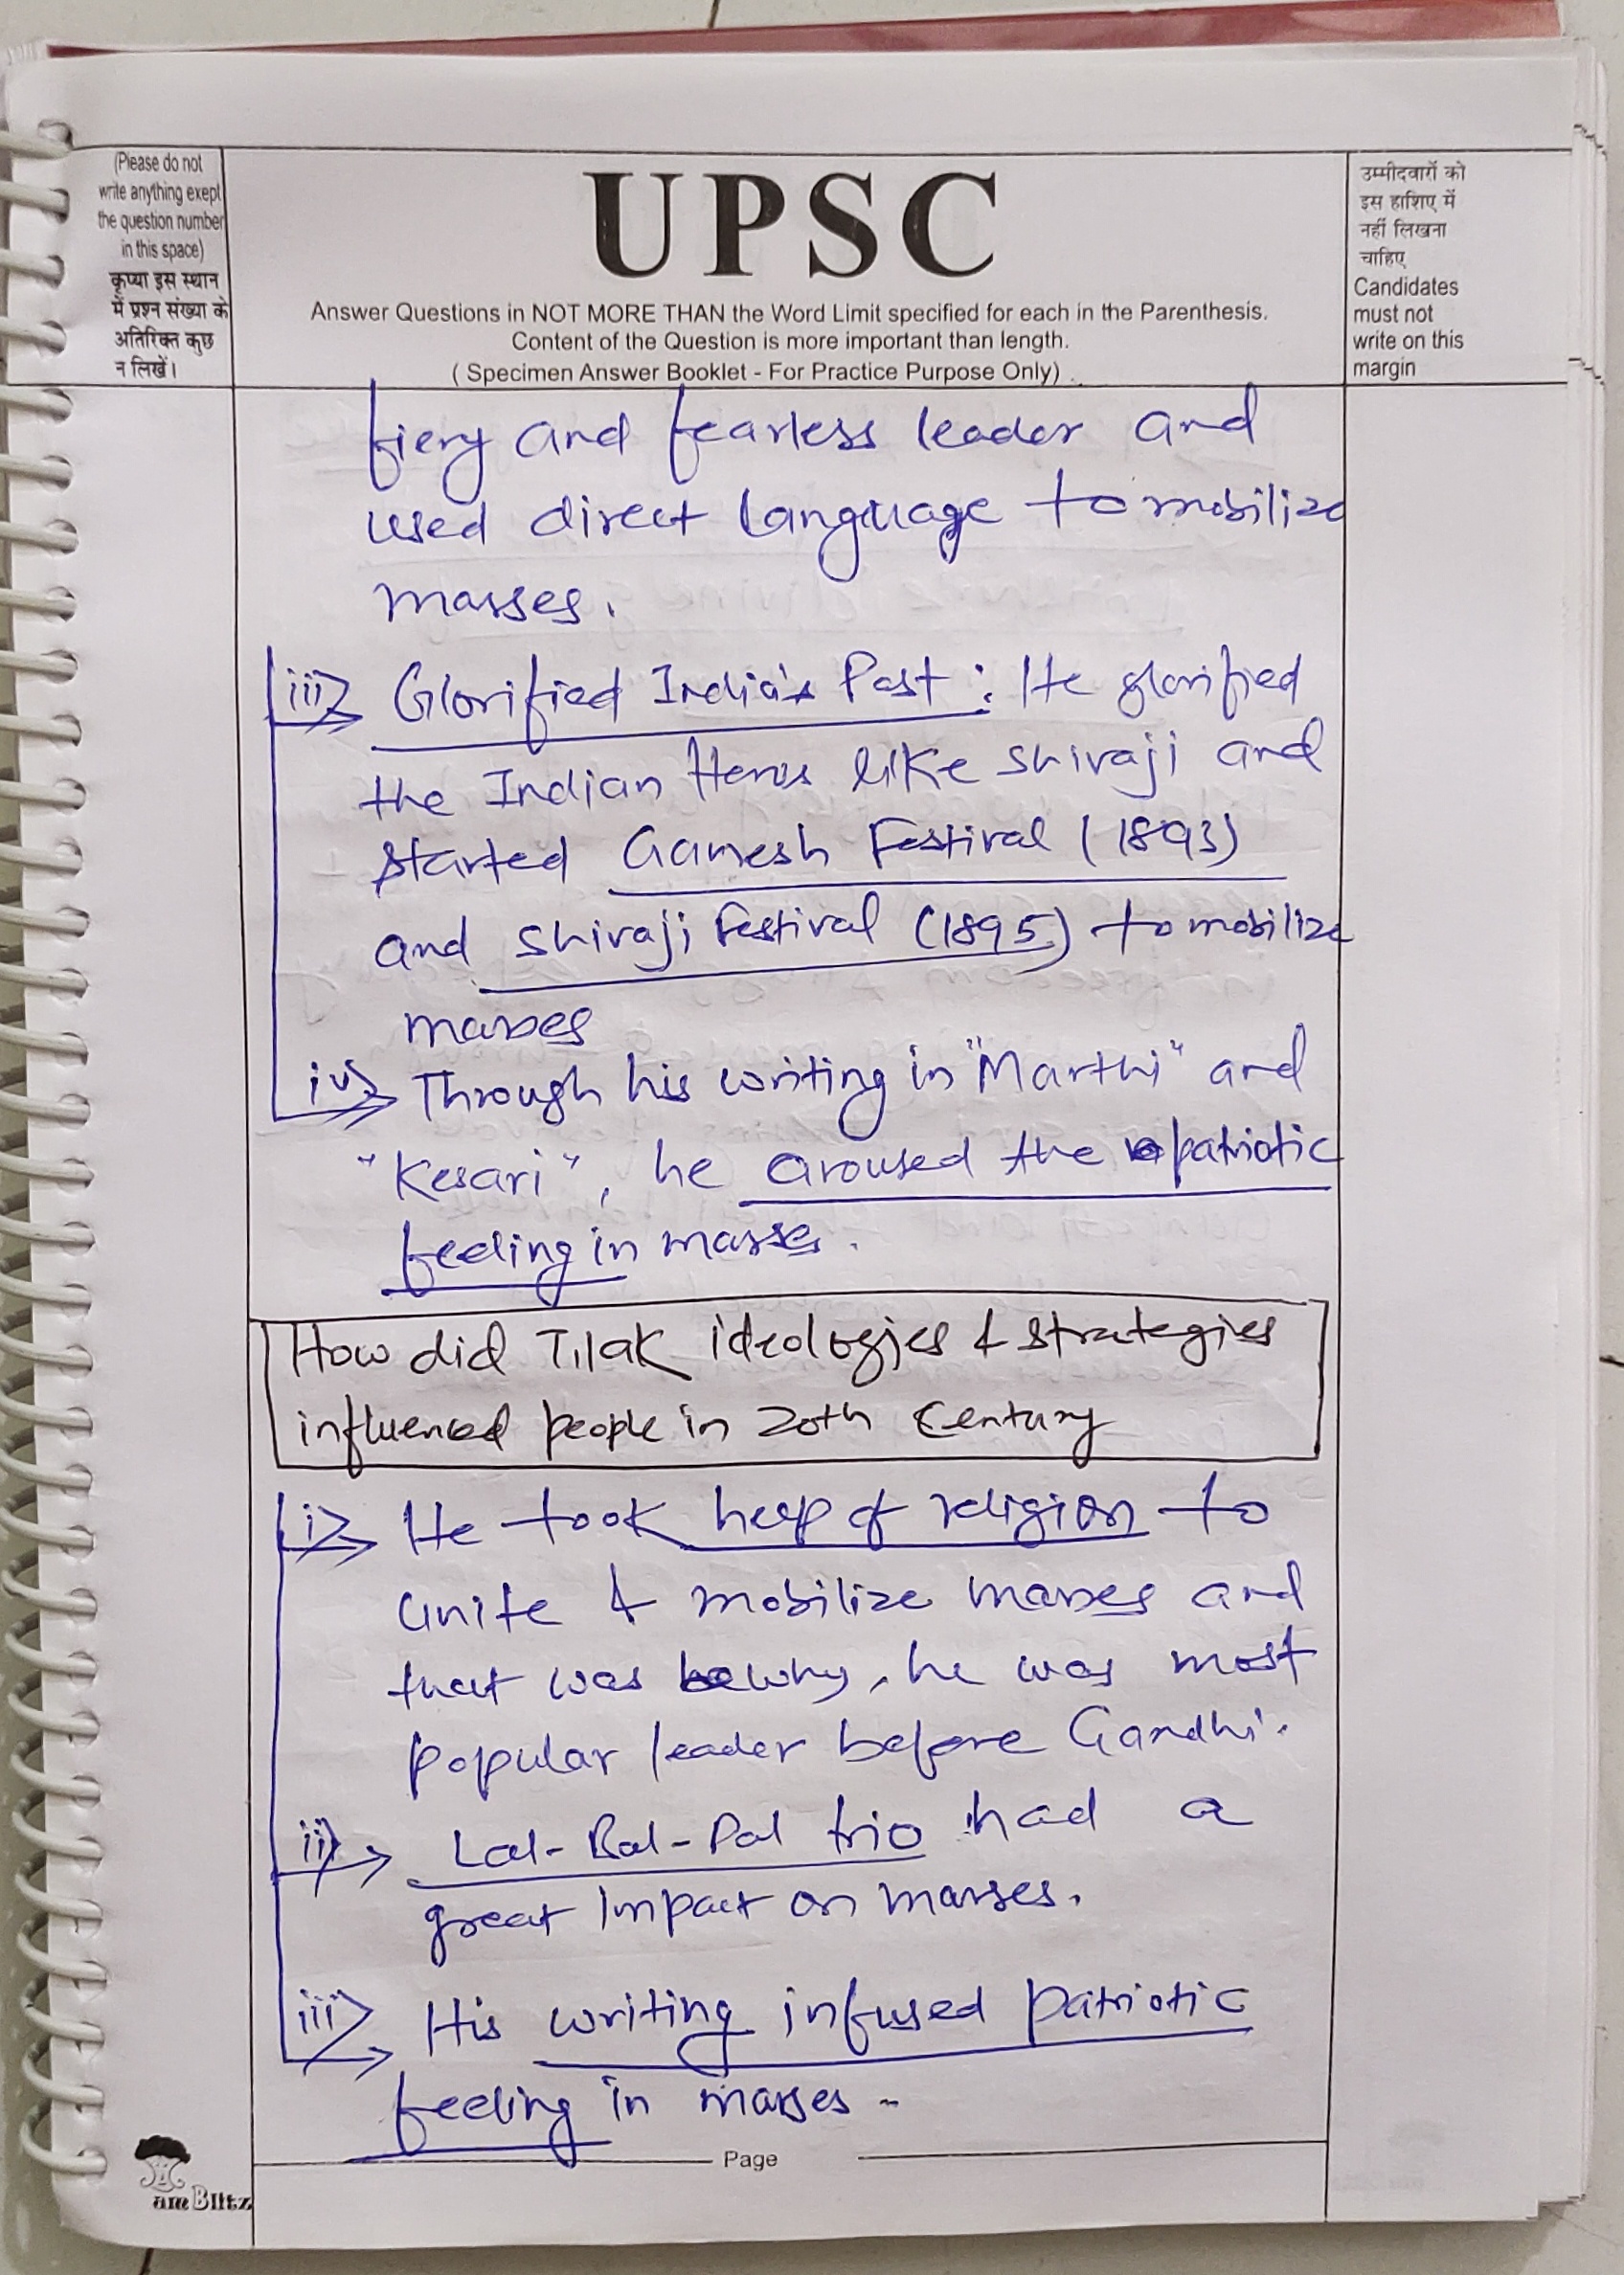 (Please do not
write anything exept
the question number
in this space)
कृप्या इस स्थान
में प्रश्न संख्या के
अतिरिक्त कुछ
न लिखें।
UPSC
Answer Questions in NOT MORE THAN the Word Limit specified for each in the Parenthesis.
Content of the Question is more important than length.
( Specimen Answer Booklet - For Practice Purpose Only)
उम्मीदवारों को
इस हाशिए में
नहीं लिखना
चाहिए
Candidates
must not
write on this
margin
fiery and fearless leader and
used direct language to mobilize
masses.
iii) Glorified India's Past : He glorified
the Indian Heros like Shivaji and
started Ganesh Festival (1893)
and Shivaji Festival (1895) to mobilize
masses
iv) Through his writing in "Marthi" and
"Kesari", he aroused the patriotic
feeling in masses.
How did Tilak ideologies & strategies
influenced people in 20th Century
i) He took help of religion to
unite & mobilize masses and
that was why, he was most
popular leader before Gandhi.
ii) Lal-Bal-Pal trio had a
great impact on masses.
iii) His writing infused patriotic
feeling in masses -
Page
am Blitz